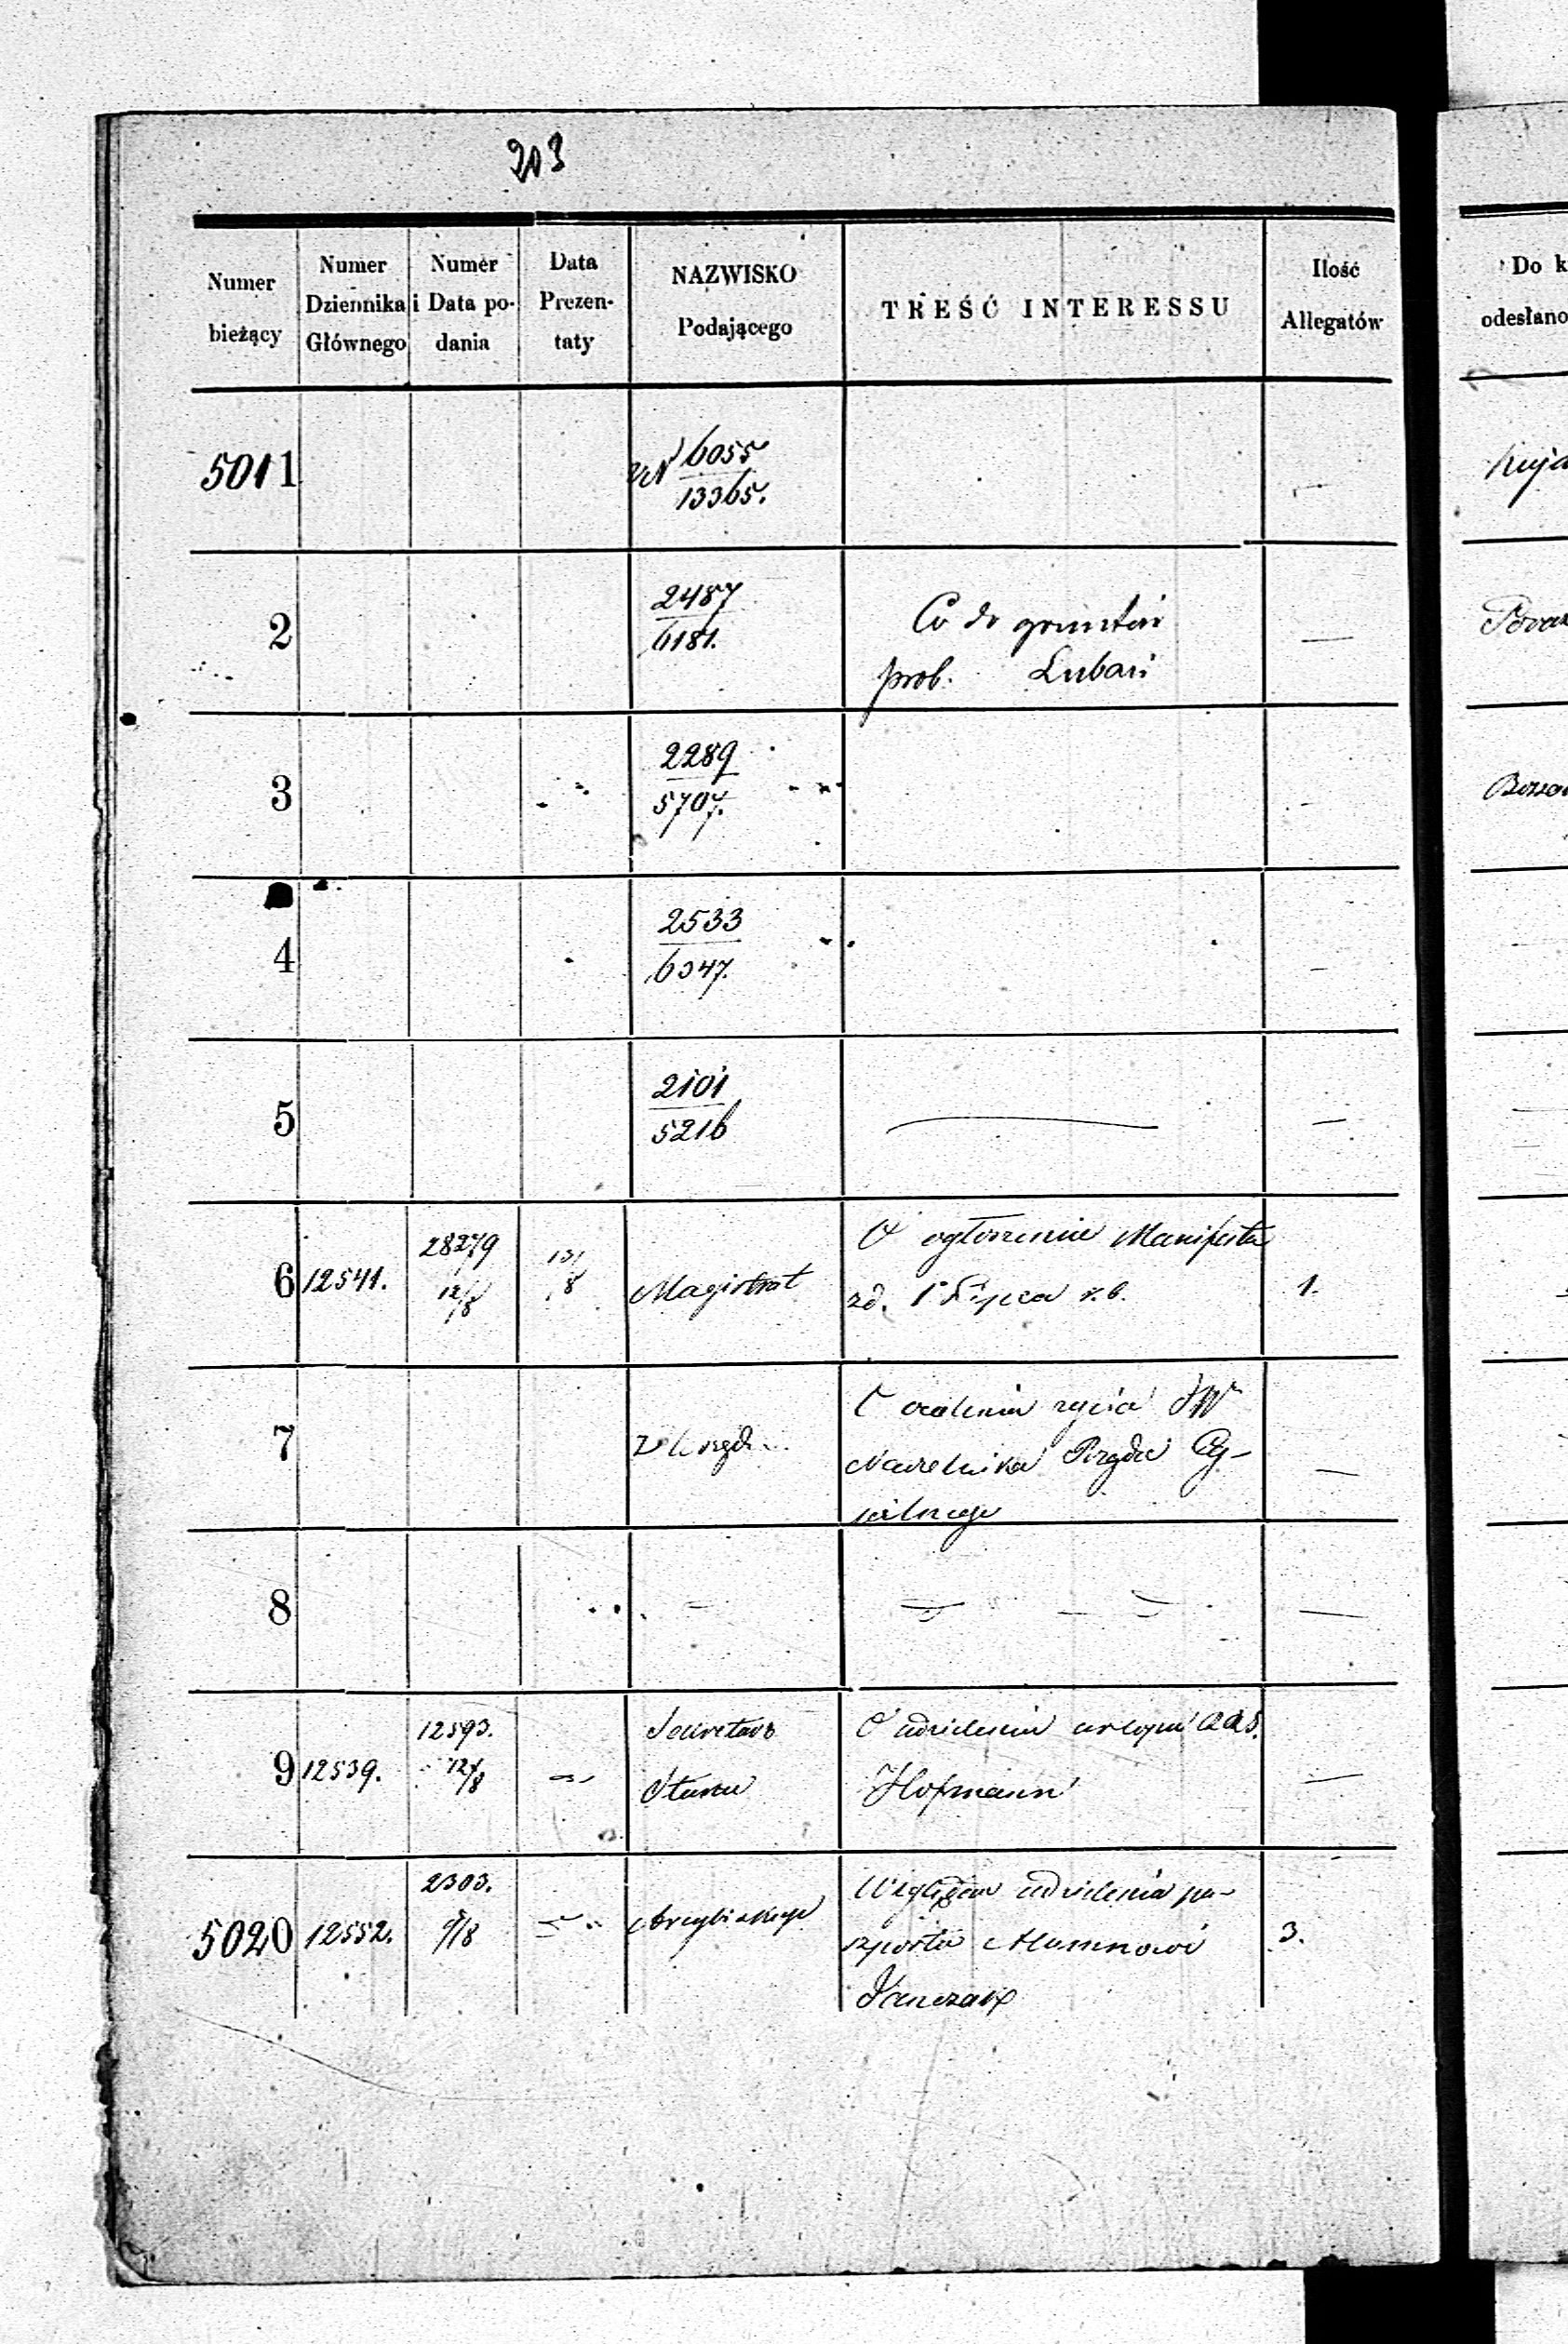 203
Numer bieżący
Numer Dziennika Głównego
Numer i Data podania
Data Prezentaty
NAZWISKO Podającego
TREŚĆ INTERESSU
Ilość Allegatów
Do k
odesłano
5011
6055
13365.
2
2487
6181.
Co do gruntów
prob. Lubań
3
2289
5707.
4
2533
6347.
5
2101
5216
—
6 12541.
28279
12/8
13/8
Magistrat
O ogłoszenie Manifestu
zd. 1 Lipca r.b.
1.
7
Z Urzęd
O ocalenia życia JW
Naczelnika Rządu Cy-
wilnego
—
8
—
9 12539.
12593.
12/8
Sekretarz
Stanu
O udzielenia urlopu
Hofmann
—
5020 12552.
2303.
9/8
Względem udzielenia pa-
szportu
3.